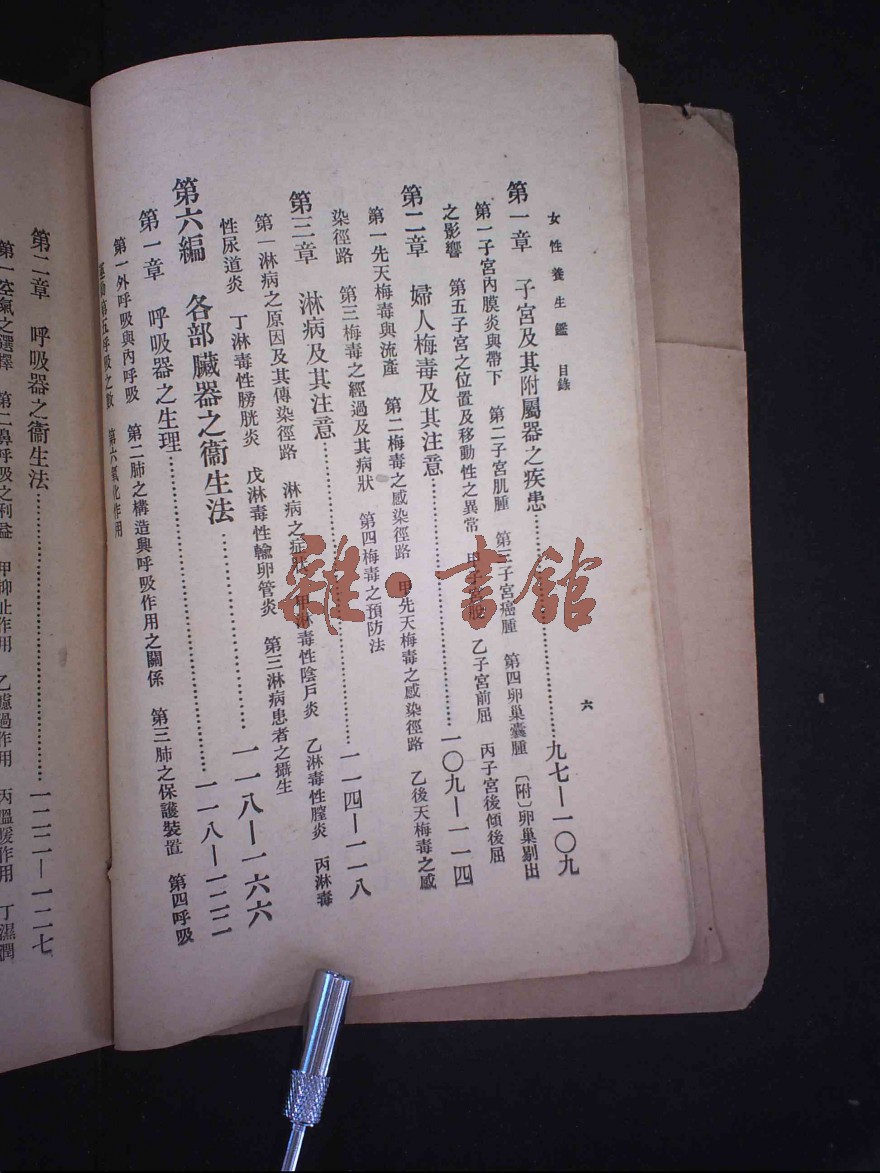 女性養生鑑 目錄 六
第一章 子宮及其附屬器之疾患……九七—一〇九
第一子宮內膜炎與帶下 第二子宮肌腫 第三子宮癌腫 第四卵巢囊腫 〔附〕卵巢剔出
之影響 第五子宮之位置及移動性之異常 甲子宮脫 乙子宮前屈 丙子宮後傾後屈
第二章 婦人梅毒及其注意……一〇九—一一四
第一先天梅毒與流產 第二梅毒之感染徑路 甲先天梅毒之感染徑路 乙後天梅毒之感
染徑路 第三梅毒之經過及其病狀 第四梅毒之預防法
第三章 淋病及其注意……一一四—一一八
第一淋病之原因及其傳染徑路 淋病之症狀 甲淋毒性陰戶炎 乙淋毒性膣炎 丙淋毒
性尿道炎 丁淋毒性膀胱炎 戊淋毒性輸卵管炎 第三淋病患者之攝生
第六編 各部臟器之衞生法……一一八—一六六
第一章 呼吸器之生理……一一八—一二二
第一外呼吸與內呼吸 第二肺之構造與呼吸作用之關係 第三肺之保護裝置 第四呼吸
運動 第五呼吸之數 第六氧化作用
第二章 呼吸器之衞生法……一二二—一二七
第一空氣之選擇 第二鼻呼吸之利益 甲抑止作用 乙濾過作用 丙溫暖作用 丁濕潤
雜·書館